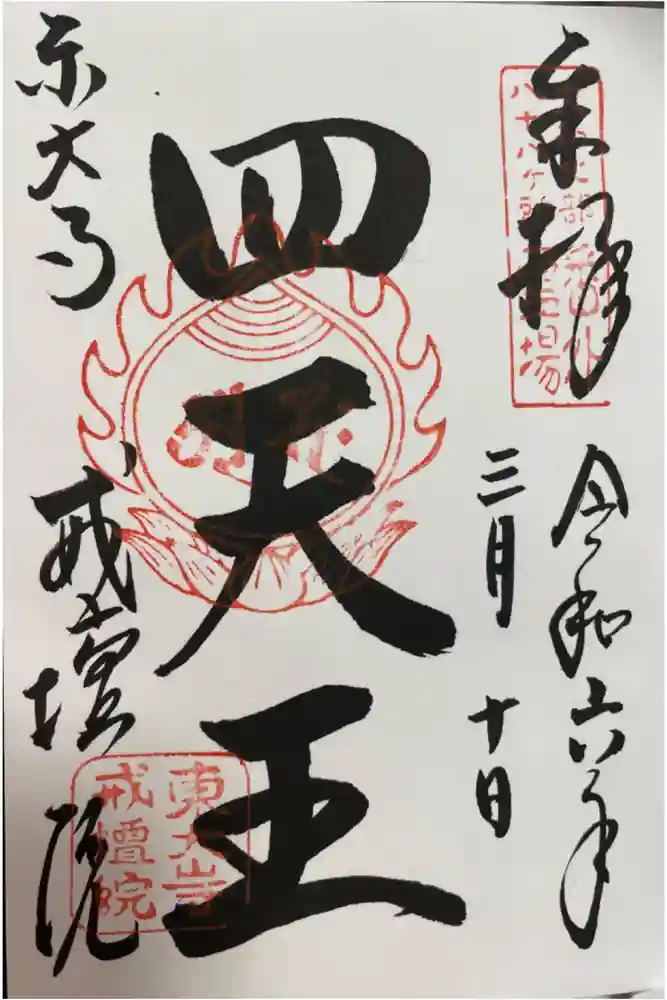 奉拝
令和六年
三月十日
四天王
東大寺
戒壇院
八十八ヶ所
霊場
東大寺
戒壇院